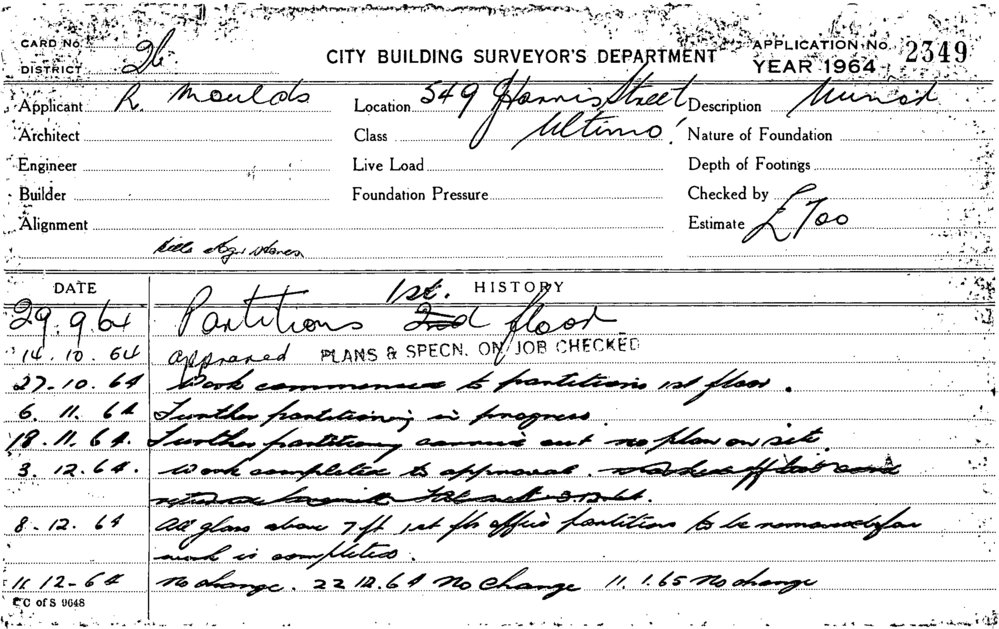 CARD No.
DISTRICT 26
CITY BUILDING SURVEYOR'S DEPARTMENT
APPLICATION No. 2349
YEAR 1964
Applicant R. Moulds
Location 549 Harris Street
Ultimo.
Description
Architect
Class
Nature of Foundation
Engineer
Live Load
Depth of Footings
Builder
Foundation Pressure
Checked by
Alignment
Estimate £700
DATE HISTORY
1st.
29.9.64 Partitions 2nd floor
14.10.64 approved PLANS & SPECN. ON JOB CHECKED
27-10.64 Work commenced to partitions 1st floor.
6.11.64 Further partitioning in progress.
18.11.64. Further partitioning carried out no plan on site.
3.12.64. Work completed to approval.
8-12.64 All glass above 7ft 1st flr office partitions to be removed
work is completed.
11.12-64 No change. 22.12.64 No Change 11.1.65 No change
CC of S 9648